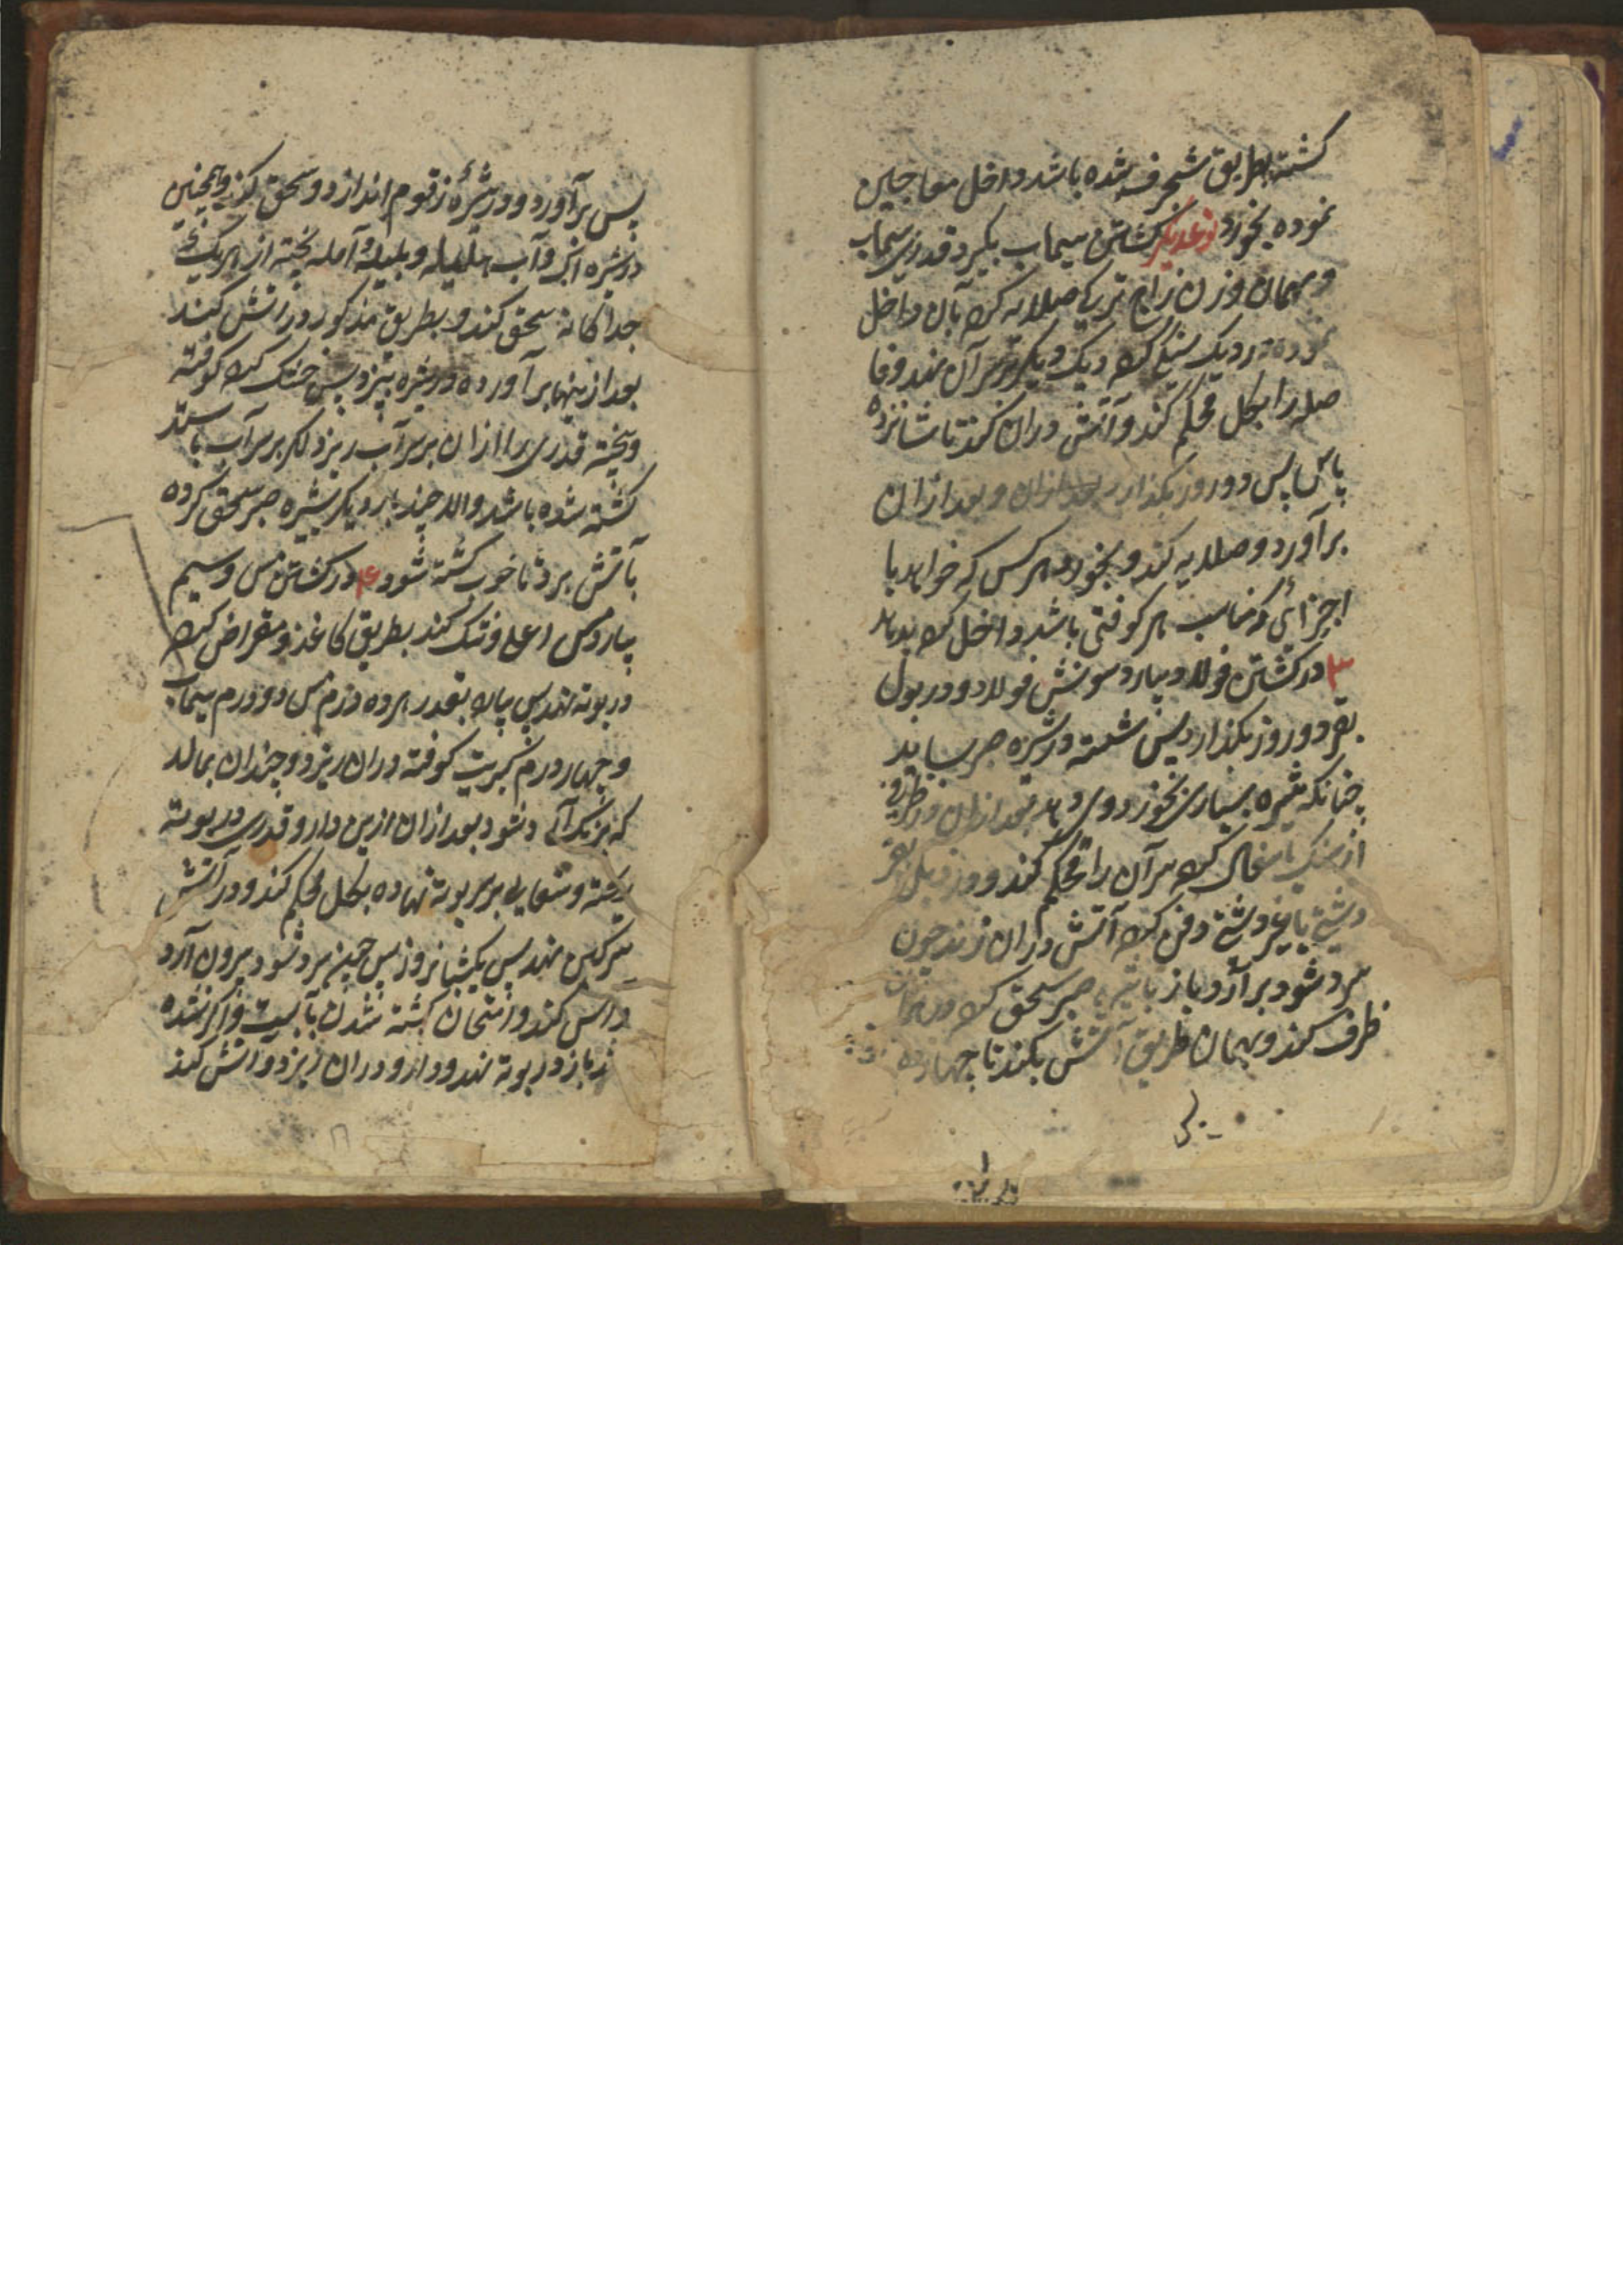 کشته بطریق شنجرف شده باشد داخل معاجین
نموده بخورد نوعدیگر کشتن سیماب بگیرد قدری سیماب
و بهمان وزن زاج ترکی صلایه کرده بآن داخل
نموده در دیک سنکی کرده دیک دیگر بر سر آن نهد و فا
صله را بکل محکم کند و آتش دران کند تا شانزده
پاس پس دو روز بگذارد بعد ازان و بعد ازان
برآورد و صلایه کند و بخورد و هر کس که خواهد با
اجزائی که مناسب هر کوفتی باشد داخل کرده بدهد
۳ در کشتن فولاد بیارد سونش فولاد و در بول
بقر دو روز بگذارد پس شسته در شیره صبر ساید
چنانکه شیره بسیاری بخورد وی دهد بعد ازان در ظرفی
از سنک یا سفال کرده سر آن را محکم کند و در زبل بقر
دشتی یا غیر دشتی دفن کرده آتش دران زند چون
سرد شود برآرد و باز با شیره صبر سحق کرده در همان
ظرف کند و بهمان طریق آتش بکند تا چهارده
پس
پس برآورد و در شیره زقوم اندازد و سحق کند و همچنین
در شیره انکر و آب هلیله و بلیله و آمله پخته از هر یک
جداگانه سحق کند و بطریق مذکور در آتش کند
بعد ازینها برآورده در شیره پزد پس خشک کرده کوفته
و بیخته قدری را ازان بر سر آب ریزد اگر بر سر آب باستد
کشته شده باشد والا چند بار دیگر بشیره صبر سحق کرده
بآتش برد تا خوب کشته شود ۴ در کشتن مس و سیم
بیارد مس اعلی و تنک کند بطریق کاغذ و مقراض کرده
در بوته نهد پس پاره بقدر هر ده درم مس دو درم سیماب
و چهار درم کبریت کوفته دران ریزد و چندان بمالد
که برنک آن شود بعد ازان ازین دارو قدری در بوته
ریخته و سفالی بر سر بوته نهاده بکل محکم کند و در آتش
سرکین نهد پس یکشبانروز پس چون سرد شود بیرون آرد
و آس کند و امتحان کشته شدن بآبست و اگر نشده
باز در بوته نهد و دارو دران ریزد و آتش کند